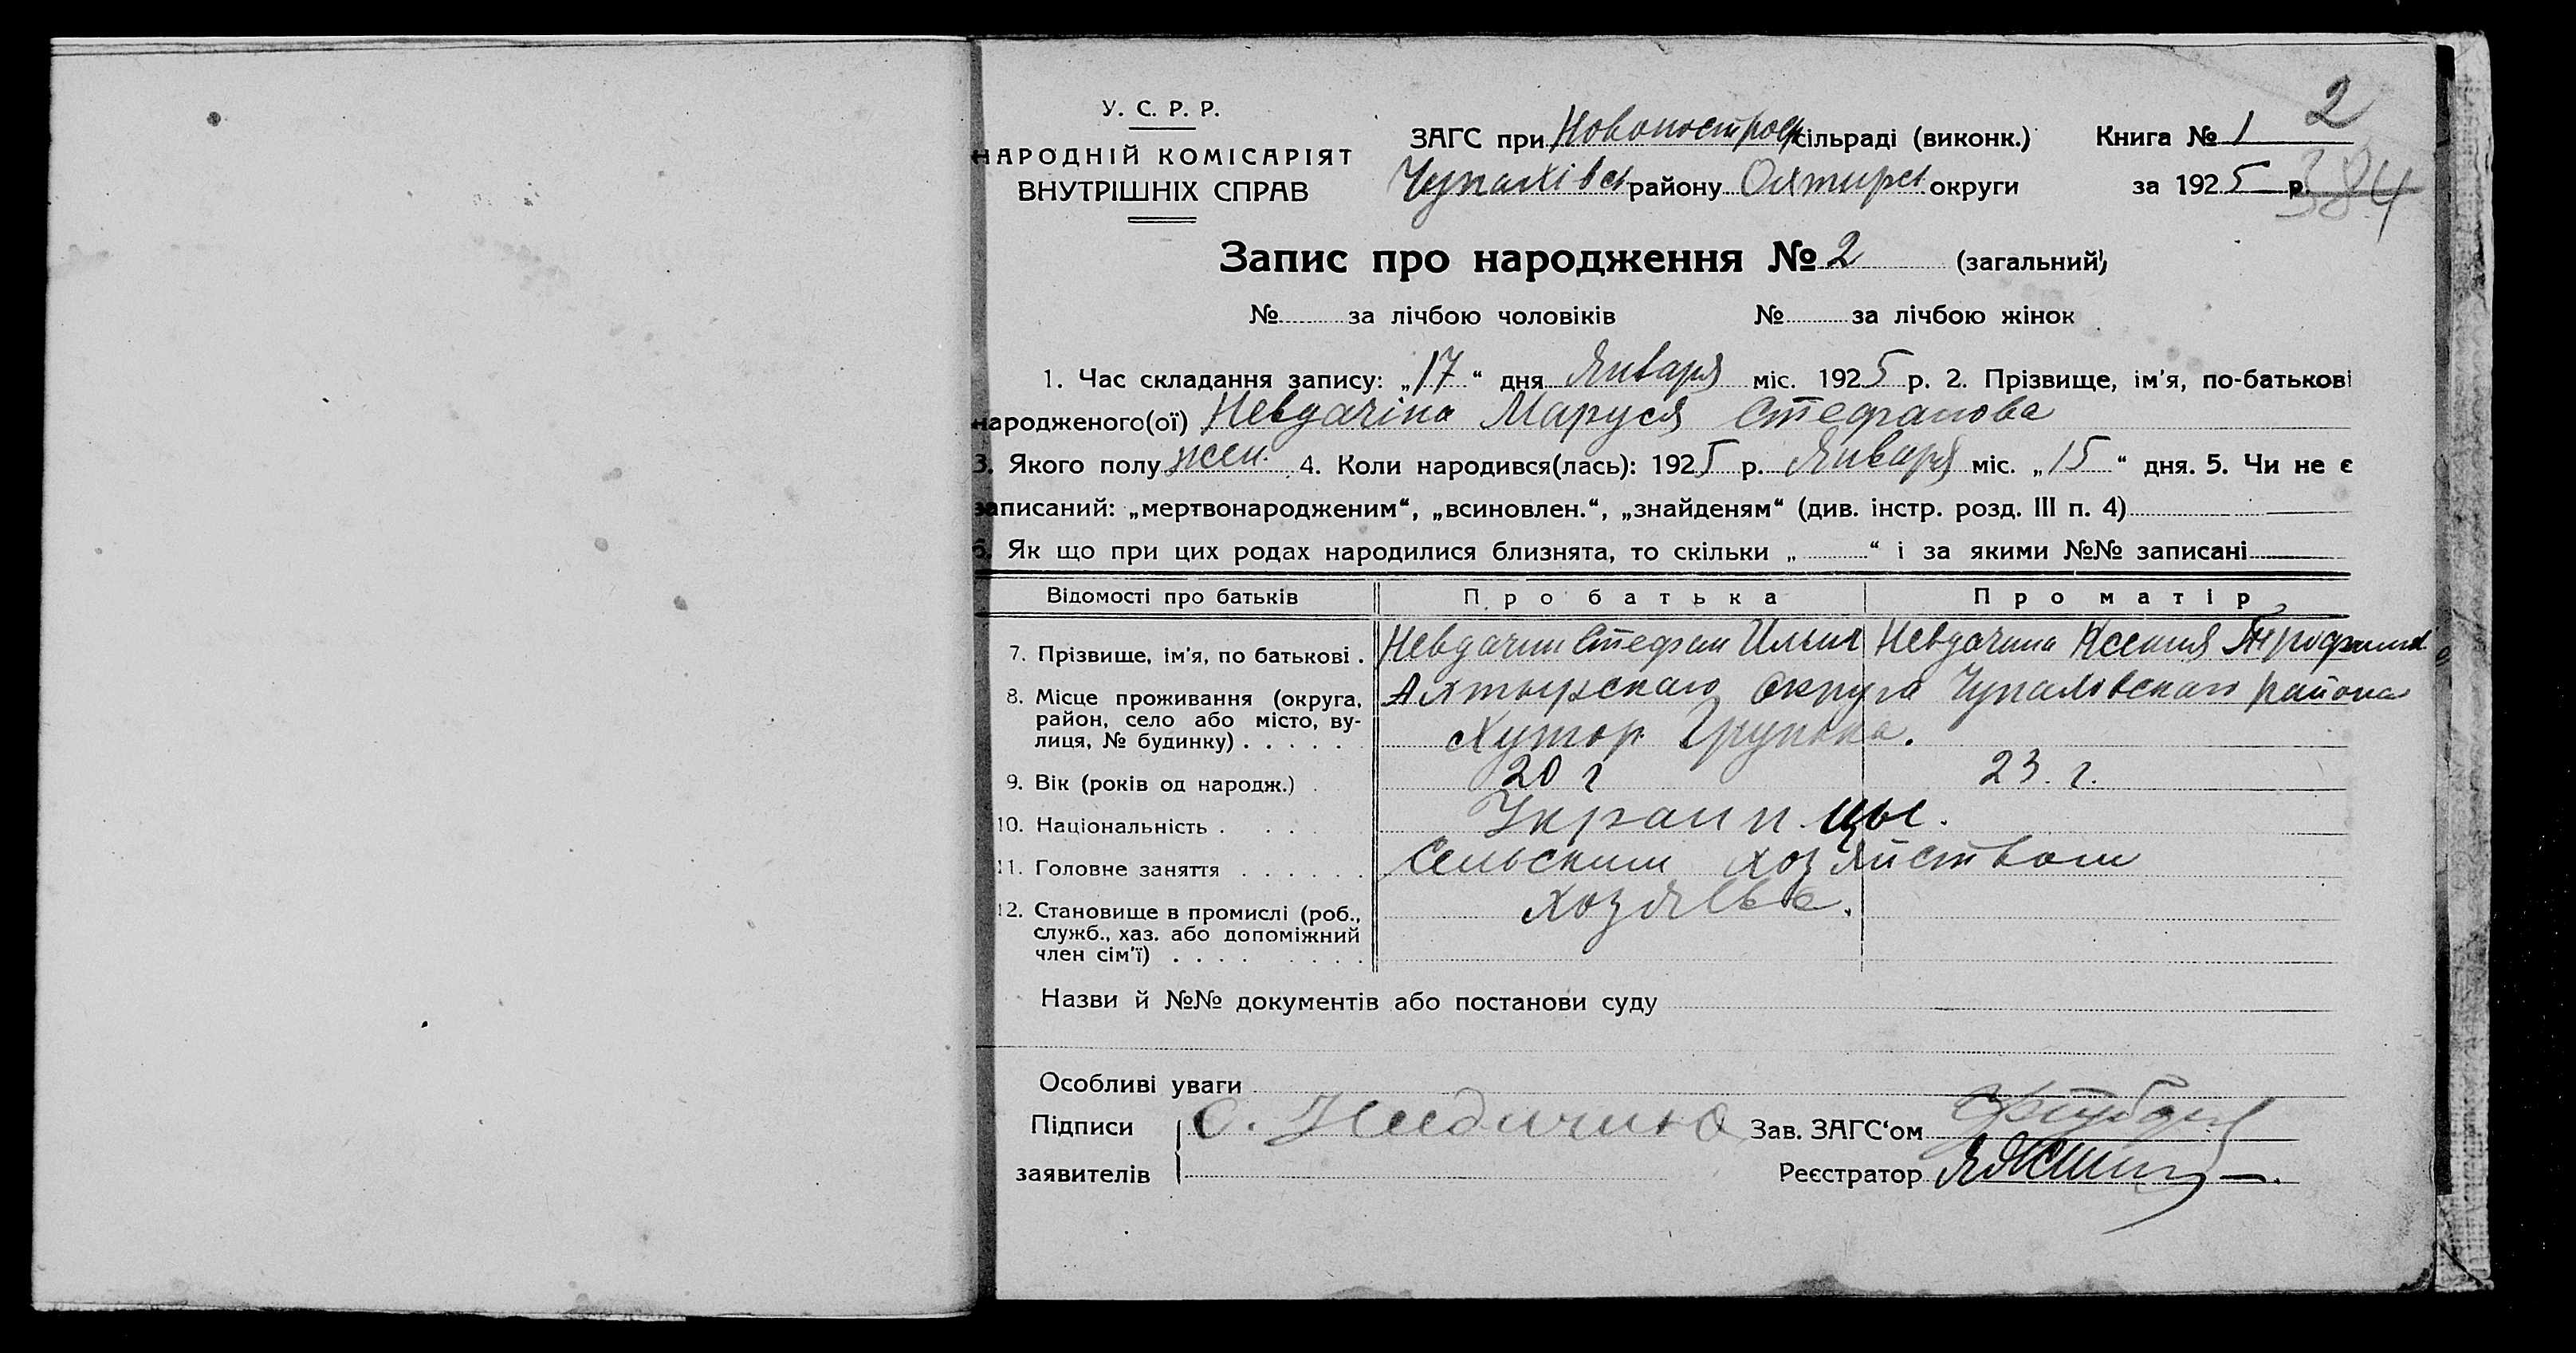 2
У. С. Р. Р.
НАРОДНІЙ КОМІСАРІЯТ
ВНУТРІШНІХ СПРАВ
ЗАГС при Новопостроф сільраді (виконк.) Книга № 1
Чупахівськ району Охтирськ округи за 1925 р.
384
Запис про народження № 2 (загальний)
№ за лічбою чоловіків № за лічбою жінок
1. Час складання запису: „17“ дня Января міс. 1925 р. 2. Прізвище, ім'я, по-батькові
народженого(ої) Невдачіна Маруся Стефанова
3. Якого полу жен. 4. Коли народився(лась): 1925 р. Января міс. „15“ дня. 5. Чи не є
записаний: „мертвонародженим“, „всиновлен.“, „знайденям“ (див. інстр. розд. III п. 4)
6. Як що при цих родах народилися близнята, то скільки „ “ і за якими №№ записані
Відомості про батьків Про батька Про матір
7. Прізвище, ім'я, по батькові . Невдачин Стефан Ильич Невдачина Ксения
8. Місце проживання (округа, Ахтырскаго округа Чупаховскаго района
район, село або місто, ву-
лиця, № будинку) . . . . . Хутор Грунька.
9. Вік (років од народж.) . 20 г 23. г.
10. Національність . . . Украинцы.
11. Головне заняття . . . . . . Сельским хозяйством
12. Становище в промислі (роб., хозяева.
служб., хаз. або допоміжний
член сім'ї) . . . . . . . .
Назви й №№ документів або постанови суду
Особливі уваги
Підписи С. Зав. ЗАГС‘ом
заявителів Реєстратор